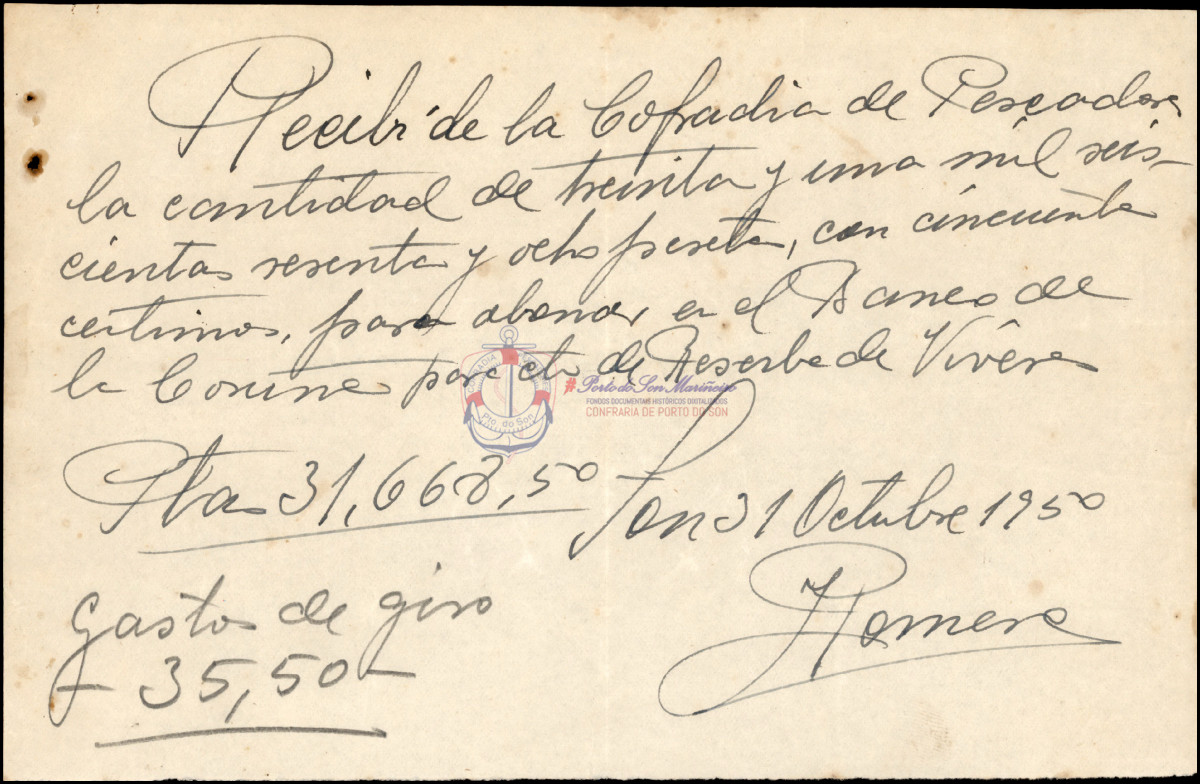 Recibí de la Cofradia de Pescadores
la cantidad de treinta y una mil seis-
cientas sesenta y ocho peseta, con cincuenta
cetimos, para abonar en el Banco de
la Coruña para cta de Reserba de Viveres
Ptas 31,668,50 Son 31 Octubre 1950
Romero
Gastos de giro
- 35,50 -
COFRADIA
Pto. do Son
#Porto do Son Mariñeiro
FONDOS DOCUMENTAIS HISTÓRICOS DIGITALIZADOS
CONFRARIA DE PORTO DO SON